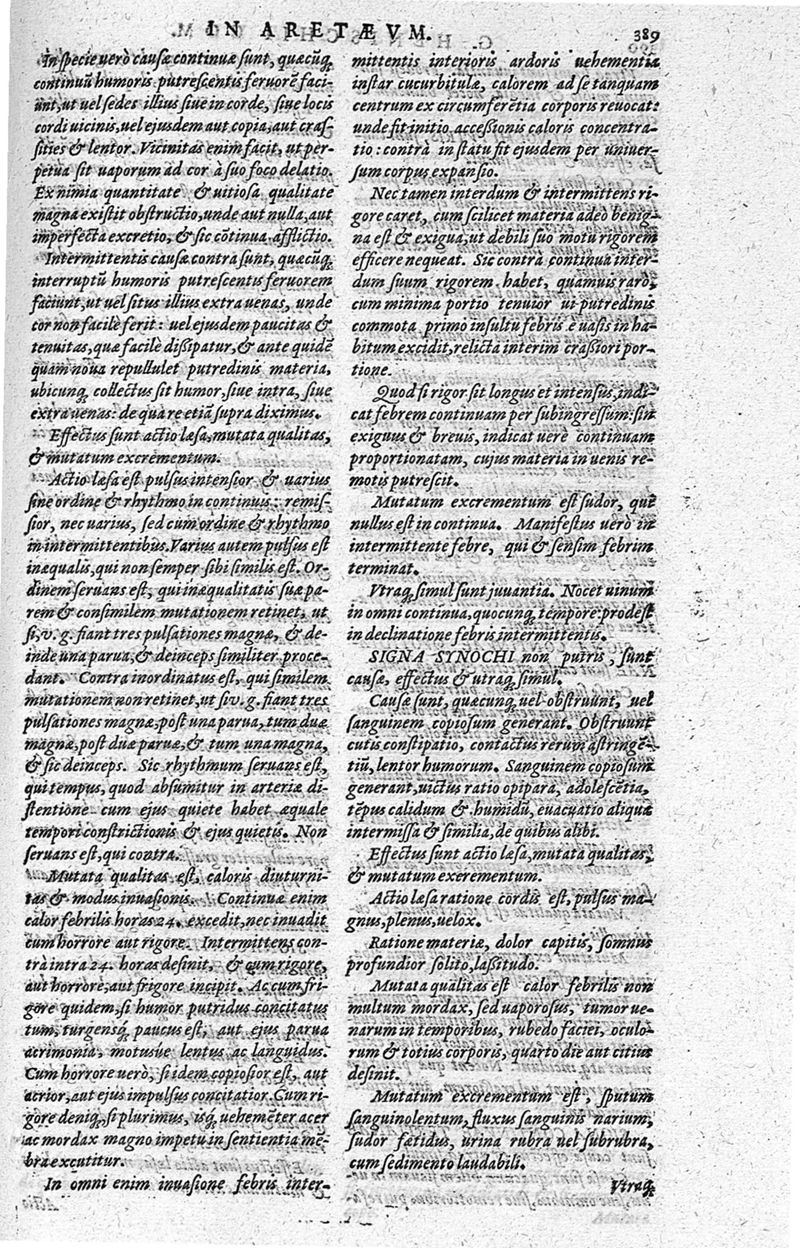 IN ARETÆVM.
389
In specie uerò causæ continuæ sunt, quæcūq́;
continuū humoris putrescentis feruorē faci-
unt, ut uel sedes illius siue in corde, siue locis
cordi uicinis, uel ejusdem aut copia, aut cras-
sities & lentor. Vicinitas enim facit, ut per-
petua sit uaporum ad cor à suo foco delatio.
Ex nimia quantitate & uitiosa qualitate
magna existit obstructio, unde aut nulla, aut
imperfecta excretio, & sic cōtinua afflictio.
Intermittentis causæ contrà sunt, quæcūq́;
interruptū humoris putrescentis feruorem
faciunt, ut uel situs illius extra uenas, unde
cor non facilè ferit: uel ejusdem paucitas &
tenuitas, quæ facilè dissipatur, & ante quidē
quàm noua repullulet putredinis materia,
ubicunq́; collectus sit humor, siue intra, siue
extra uenas: de qua re etiā supra diximus.
Effectus sunt actio læsa, mutata qualitas,
& mutatum excrementum.
Actio læsa est pulsus intensior & uarius
sine ordine & rhythmo in continuis: remis-
sior, nec uarius, sed cum ordine & rhythmo
in intermittentibus. Varius autem pulsus est
inæqualis, qui non semper sibi similis est. Or-
dinem seruans est, qui inæqualitatis suæ pa-
rem & consimilem mutationem retinet, ut
si, v. g. fiant tres pulsationes magnæ, & de-
inde una parua, & deinceps similiter proce-
dant. Contrà inordinatus est, qui similem
mutationem non retinet, ut si v. g. fiant tres
pulsationes magnæ, post una parua, tum duæ
magnæ, post duæ paruæ, & tum una magna,
& sic deinceps. Sic rhythmum seruans est,
qui tempus, quod absumitur in arteriæ di-
stentione cum ejus quiete habet æquale
tempori constrictionis & ejus quietis. Non
seruans est, qui contrà.
Mutata qualitas est, caloris diuturni-
tas & modus inuasionis. Continuæ enim
calor febrilis horas 24. excedit, nec inuadit
cum horrore aut rigore. Intermittens con-
trà intra 24. horas desinit, & cum rigore,
aut horrore, aut frigore incipit. Ac cum fri-
gore quidem, si humor putridus concitatus
tum, turgensq́; paucus est, aut ejus parua
acrimonia, motusue lentus ac languidus.
Cum horrore uerò, si idem copiosior est, aut
acrior, aut ejus impulsus concitatior. Cum ri-
gore deniq́;, si plurimus, isq́; uehemēter acer
ac mordax magno impetu in sentientia mē-
bra excutitur.
In omni enim inuasione febris inter-
mittentis interioris ardoris uehementia
instar cucurbitulæ, calorem ad se tanquam
centrum ex circumferētia corporis reuocat:
unde fit initio accessionis caloris concentra-
tio: contrà in statu fit ejusdem per uniuer-
sum corpus expansio.
Nec tamen interdum & intermittens ri-
gore caret, cum scilicet materia adeò benig-
na est & exigua, ut debili suo motu rigorem
efficere nequeat. Sic contrà continua inter-
dum suum rigorem habet, quamuis rarò,
cum minima portio tenuior ui putredinis
commota primo insultu febris è uasis in ha-
bitum excidit, relicta interim crassiori por-
tione.
Quod si rigor sit longus et intensus, indi-
cat febrem continuam per subingressum: sin
exiguus & breuis, indicat uerè continuam
proportionatam, cujus materia in uenis re-
motis putrescit.
Mutatum excrementum est sudor, qui
nullus est in continua. Manifestus uerò in
intermittente febre, qui & sensim febrim
terminat.
Vtraq́; simul sunt juuantia. Nocet uinum
in omni continua, quocunq́; tempore: prodest
in declinatione febris intermittentis.
SIGNA SYNOCHI non putris, sunt
causæ, effectus & utraq́; simul.
Causæ sunt, quæcunq́; uel obstruunt, uel
sanguinem copiosum generant. Obstruunt
cutis constipatio, contactus rerum astringē-
tiū, lentor humorum. Sanguinem copiosum
generant, uictus ratio opipara, adolescētia,
tēpus calidum & humidū, euacuatio aliqua
intermissa & similia, de quibus alibi.
Effectus sunt actio læsa, mutata qualitas,
& mutatum exerementum.
Actio læsa ratione cordis est, pulsus ma-
gnus, plenus, uelox.
Ratione materiæ, dolor capitis, somnus
profundior solito, lassitudo.
Mutata qualitas est calor febrilis non
multum mordax, sed uaporosus, tumor ue-
narum in temporibus, rubedo faciei, oculo-
rum & totius corporis, quarto die aut citius
desinit.
Mutatum excrementum est, sputum
sanguinolentum, fluxus sanguinis narium,
sudor fœtidus, urina rubra uel subrubra,
cum sedimento laudabili.
Vtraq́;